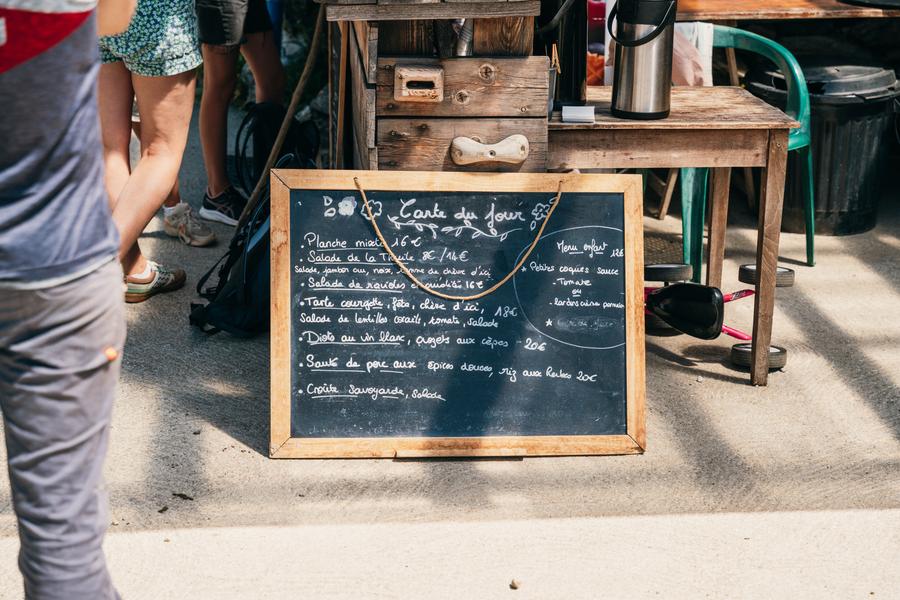 Carte du jour
• Planche mixte 16€
Salade de la Truite 8€ / 14€
Salade, jambon cru, noix, tomme de chèvre d'ici
Salade de ravioles 16€
• Tarte courgette, féta, chèvre d'ici, 18€
Salade de lentilles corails, tomate, salade
• Diots au vin blanc, crozets aux cèpes - 20€
• Sauté de porc aux épices douces, riz aux herbes 20€
• Croûte Savoyarde, salade
Menu enfant 12€
* Petites coques sauce
- Tomate
ou
- lardons crème
*